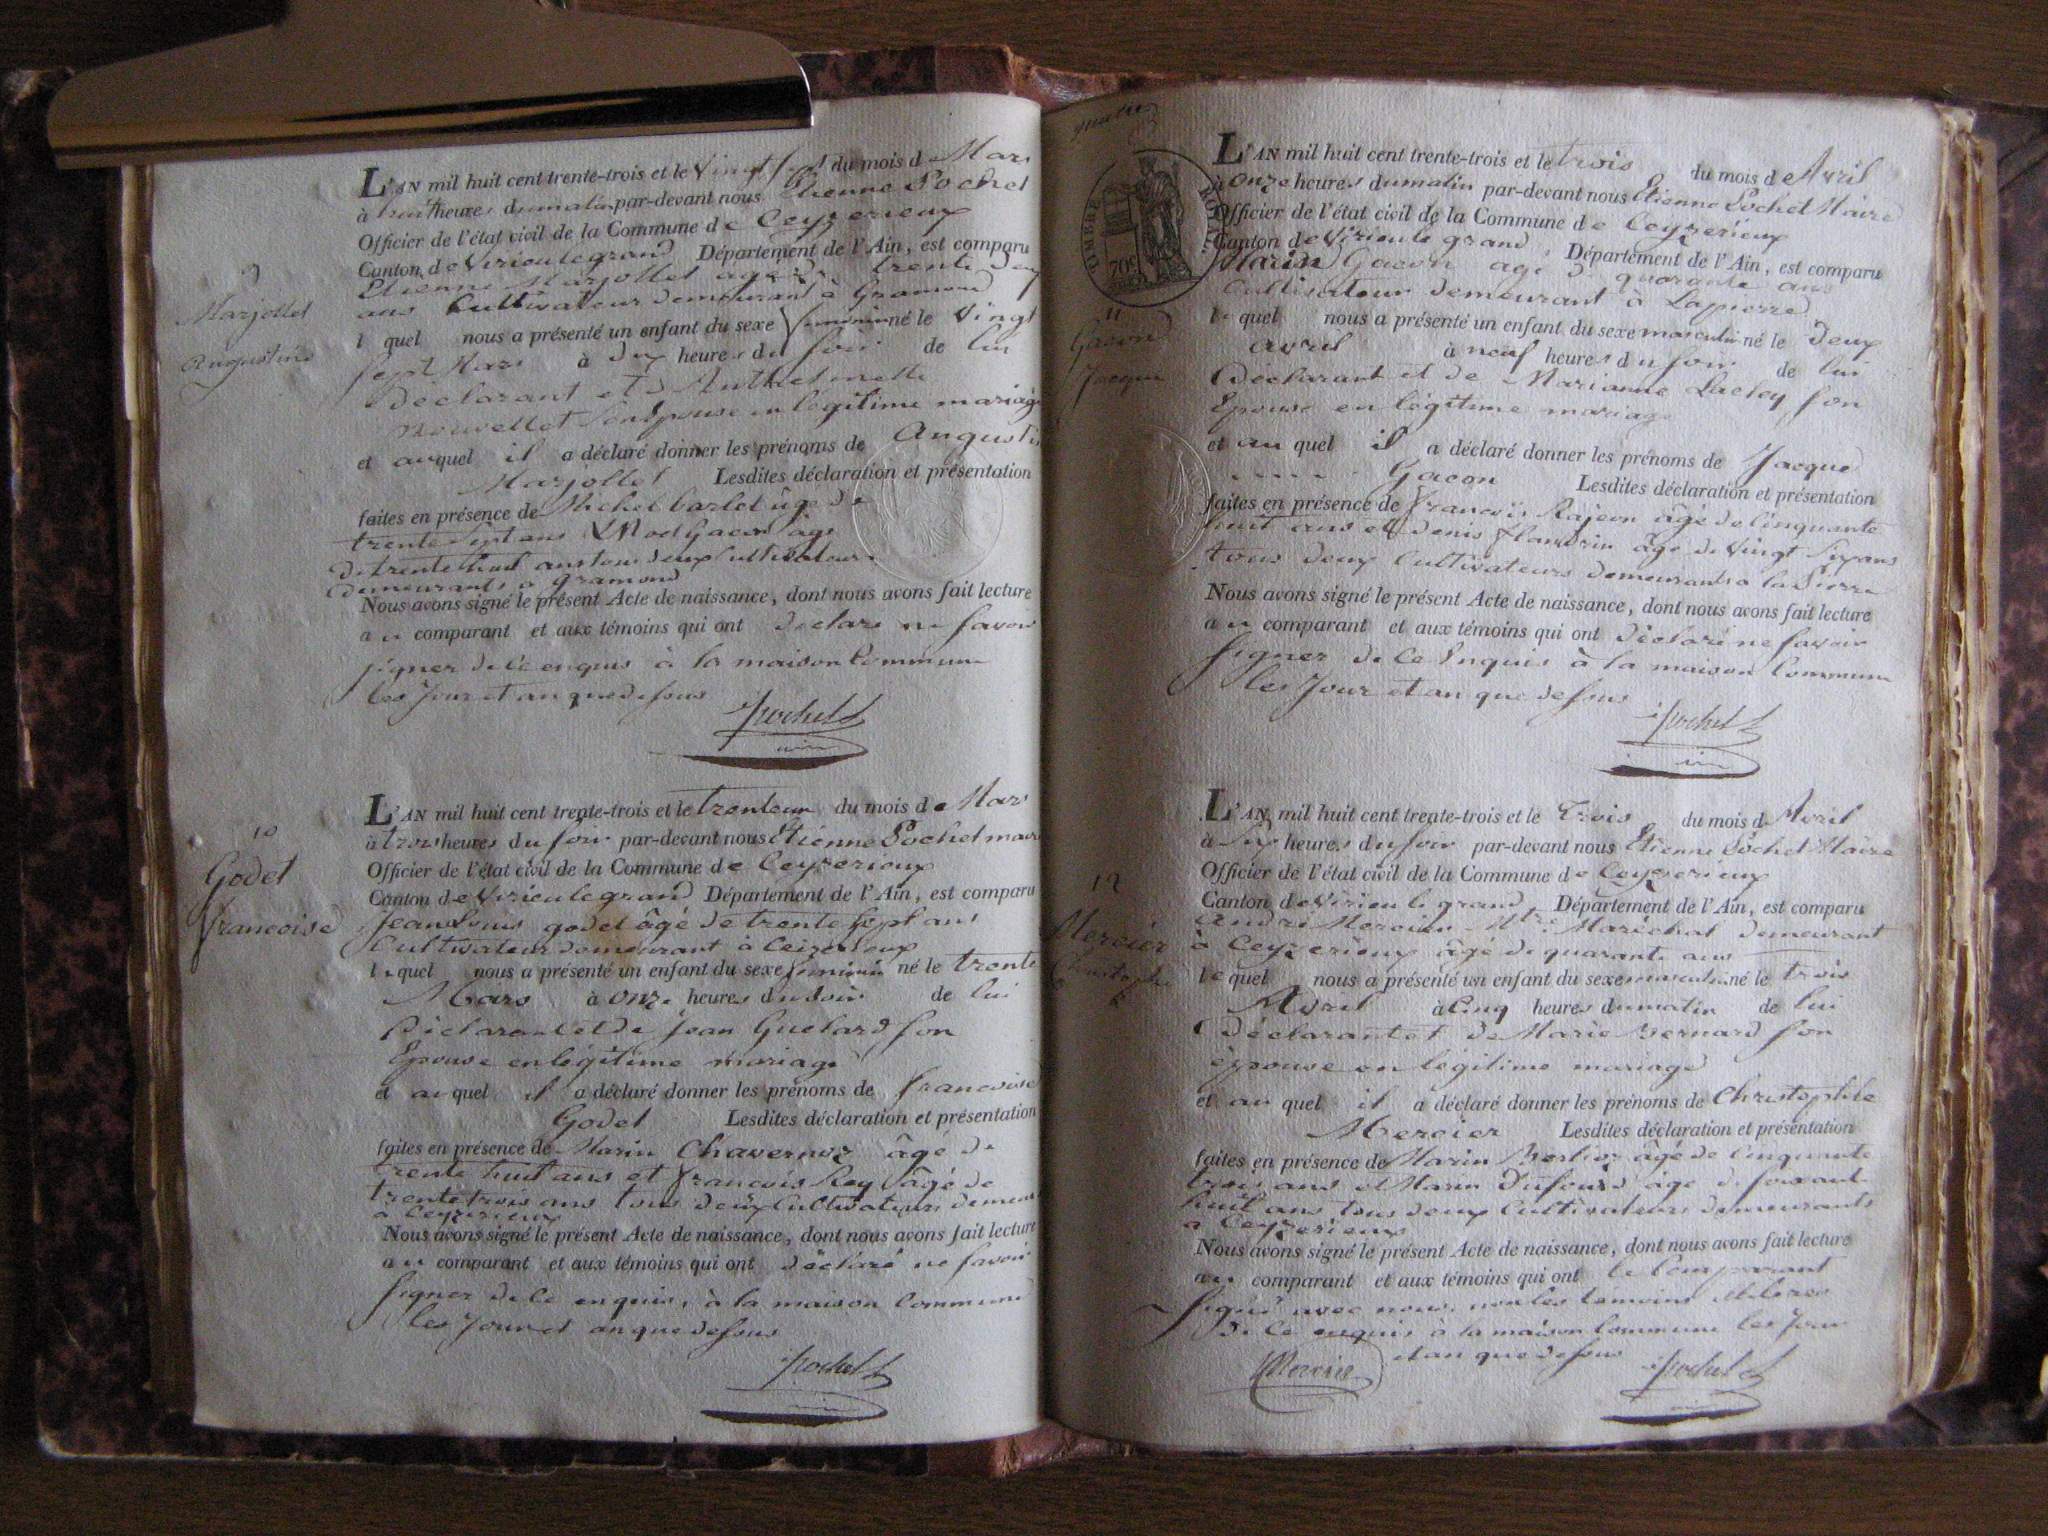 9
Marjollet
Augustine
L'AN mil huit cent trente-trois et le Vingt du mois de Mars
à huit heures du matin par-devant nous Etienne Pochet
Officier de l'état civil de la Commune de Ceyzerieux
Canton de Virieulegrand Département de l'Ain, est comparu
Etienne Marjollet agé de trente deux
ans Cultivateur demeurant à Gramond
lequel nous a présenté un enfant du sexe feminin né le Vingt
sept Mars à dix heures du soir de lui
Déclarant et d Anthelmette
Nouvellet son Epouse en légitime mariage
et auquel il a déclaré donner les prénoms de Augustine
Marjollet Lesdites déclaration et présentation
faites en présence de Michel barlet âgé de
trente sept ans Gacon âgé
de trente huit ans tous deux Cultivateurs
demeurants à gramond
Nous avons signé le présent Acte de naissance, dont nous avons fait lecture
au comparant et aux témoins qui ont déclaré ne savoir
signer de ce enquis à la maison Commune
les Jour et an que dessus
Pochet
10
Godet
francoise
L'AN mil huit cent trente-trois et le trenteun du mois de Mars
à trois heures du soir par-devant nous Etienne Pochet maire
Officier de l'état civil de la Commune de Ceyzerieux
Canton de Virieulegrand Département de l'Ain, est comparu
Jean Louis godet âgé de trente sept ans
Cultivateur demeurant à Ceizerieux
lequel nous a présenté un enfant du sexe feminin né le trente
Mars à onze heures du soir de lui
Déclarant et de jean Guelard son
Epouse en légitime mariage
et auquel il a déclaré donner les prénoms de francoise
Godet Lesdites déclaration et présentation
faites en présence de Marin Chavernoz âgé de
trente huit ans et francois Rey âgé de
trente trois ans tous deux Cultivateurs demeurants
à Ceyzerieux
Nous avons signé le présent Acte de naissance, dont nous avons fait lecture
au comparant et aux témoins qui ont déclaré ne savoir
signer de Ce enquis, à la maison Commune
les Jour et an que dessus
Pochet
TIMBRE ROYAL
70c
11
Gacon
Jacque
L'AN mil huit cent trente-trois et le trois du mois de Avril
à onze heures du matin par-devant nous Etienne Pochet Maire
Officier de l'état civil de la Commune de Ceyzerieux
Canton de Virieu le grand Département de l'Ain, est comparu
Marin Gacon agé d quarante ans
Cultivateur demeurant à Lapierre
lequel nous a présenté un enfant du sexe masculin né le Deux
avril à neuf heures du soir de lui
Déclarant et de Marianne Lacley son
Epouse en légitime mariage
et auquel il a déclaré donner les prénoms de Jacque
Gacon Lesdites déclaration et présentation
faites en présence de francois Rajeon âgé de Cinquante
huit ans et denis flandrin âgé de Vingt Six ans
tous deux Cultivateurs demeurants a la Pierre
Nous avons signé le présent Acte de naissance, dont nous avons fait lecture
au comparant et aux témoins qui ont déclaré ne savoir
signer de Ce Enquis à la maison Commune
les Jour et an que dessus
Pochet
12
Mercier
Christophe
L'AN mil huit cent trente-trois et le trois du mois d Avril
à Six heures du soir par-devant nous Etienne Pochet Maire
Officier de l'état civil de la Commune de Ceyzerieux
Canton de Virieu le grand Département de l'Ain, est comparu
andré Mercier Mtre Maréchal demeurant
à Ceyzerieux âgé de quarante ans
lequel nous a présenté un enfant du sexe masculin né le trois
Avril à Cinq heures du matin de lui
Déclarant et de Marie Bernard son
épouse en légitime mariage
et auquel il a déclaré donner les prénoms de Christophle
Mercier Lesdites déclaration et présentation
faites en présence de Marin Berlioz âgé de Cinquante
trois ans et Marin Dufour âgé de soixante
huit ans tous deux Cultivateurs demeurants
à Ceyzerieux
Nous avons signé le présent Acte de naissance, dont nous avons fait lecture
au comparant et aux témoins qui ont le Comparant
signé avec nous, non les témoins
de Ce enquis à la maison Commune les Jour
et an que dessus
Mercier
Pochet